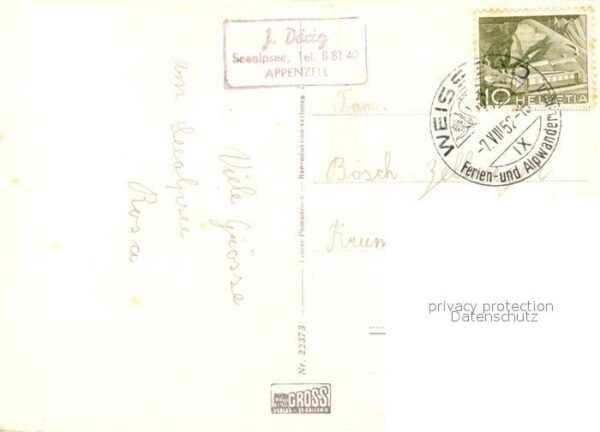 J. Dörig
Seealpsee, Tel. 8 81 40
APPENZELL
10 HELVETIA
WEISSBAD
-7.VIII 52-18
IX
Ferien- und Alpwander
Fam.
Bösch-Zell
Krum
Viele Grüsse
am Seealpsee
Rosa
Echte Photographie — Reproduktion verboten
Nr. 22373
FOTO GROSS
VERLAG ST. GALLEN O
privacy protection
Datenschutz